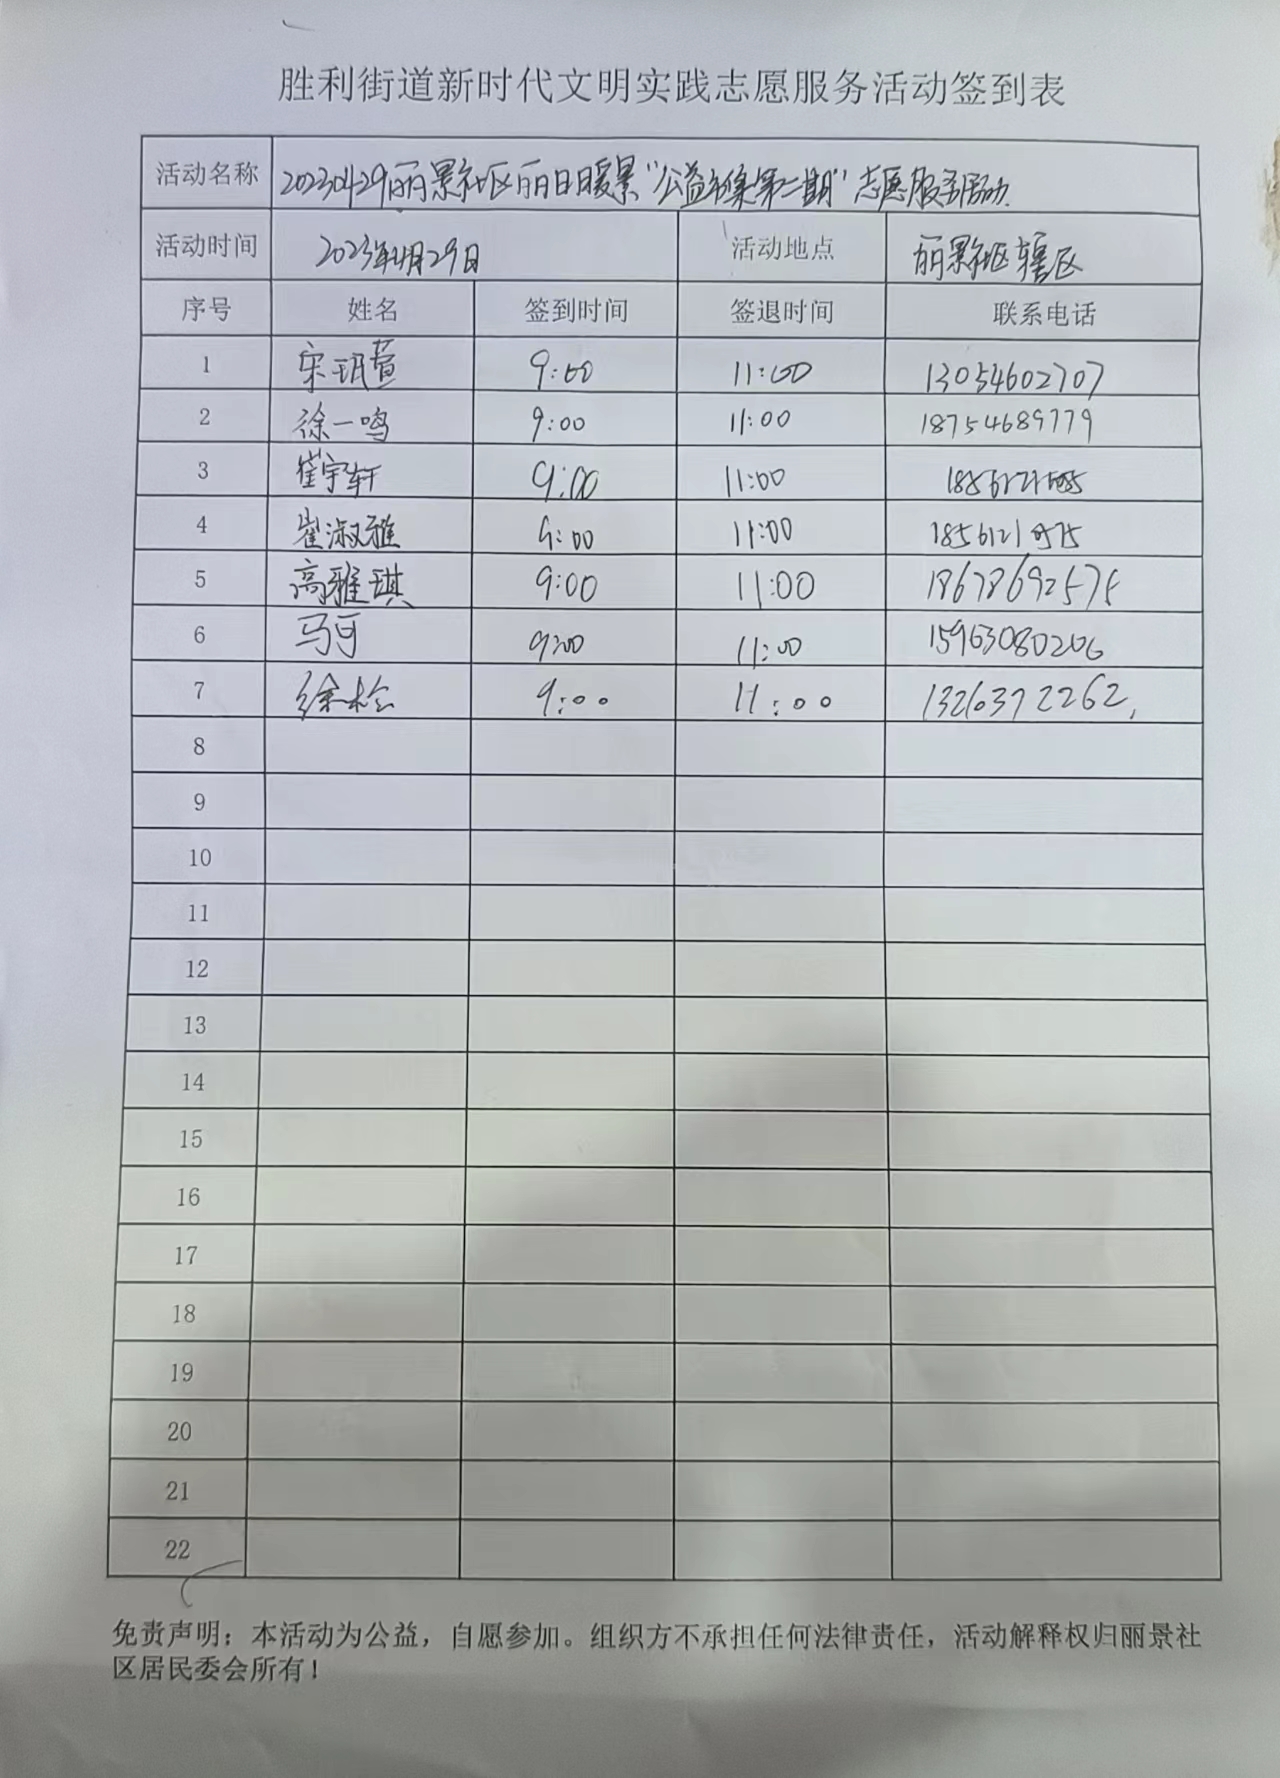 胜利街道新时代文明实践志愿服务活动签到表
活动名称 20230429丽景社区丽日暖景“公益市集第二期”志愿服务活动.
活动时间 2023年4月29日 活动地点 丽景社区辖区
序号 姓名 签到时间 签退时间 联系电话
1 宋玥萱 9:00 11:00 13054602707
2 徐一鸣 9:00 11:00 18754689779
3 崔宇轩 9:00 11:00
4 崔淑雅 9:00 11:00
5 高雅琪 9:00 11:00 18678692575
6 马可 9:00 11:00 15963080206
7 徐松 9:00 11:00 1326372262
8
9
10
11
12
13
14
15
16
17
18
19
20
21
22
免责声明：本活动为公益，自愿参加。组织方不承担任何法律责任，活动解释权归丽景社
区居民委会所有！